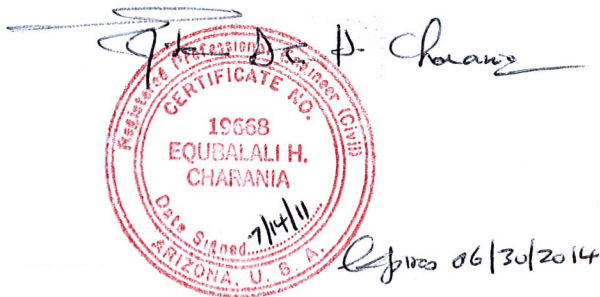 H. Charania
Registered Professional Engineer (Civil)
CERTIFICATE NO.
19668
EQUBALALI H.
CHARANIA
Date Signed 7/14/11
ARIZONA, U. S. A.
Expires 06/30/2014